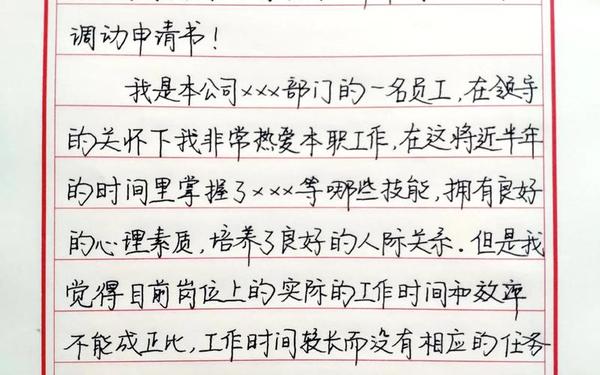 调动申请书！
我是本公司×××部门的一名员工，在领导
的关怀下我非常热爱本职工作，在这将近半年
的时间里掌握了×××等哪些技能，拥有良好
的心理素质，培养了良好的人际关系．但是我
觉得目前岗位上的实际的工作时间和效率
不能成正比，工作时间较长而没有相应的任务